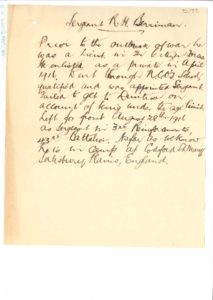 Sergeant R. H. Berriman.
Prior to the outbreak of war he
was a Lieut in
He enlisted as a private in April
1916, Went through N.C.O's School,
qualified and was appointed Sergeant
Failed to get to Duntroon on
account of being under the age limit
Left for front August 28th 1916
as Sergeant in 3rd Reinforcements,
43rd Battalion. As far as we know
he is in camp at Codford St Mary
Salisbury Plains, England.